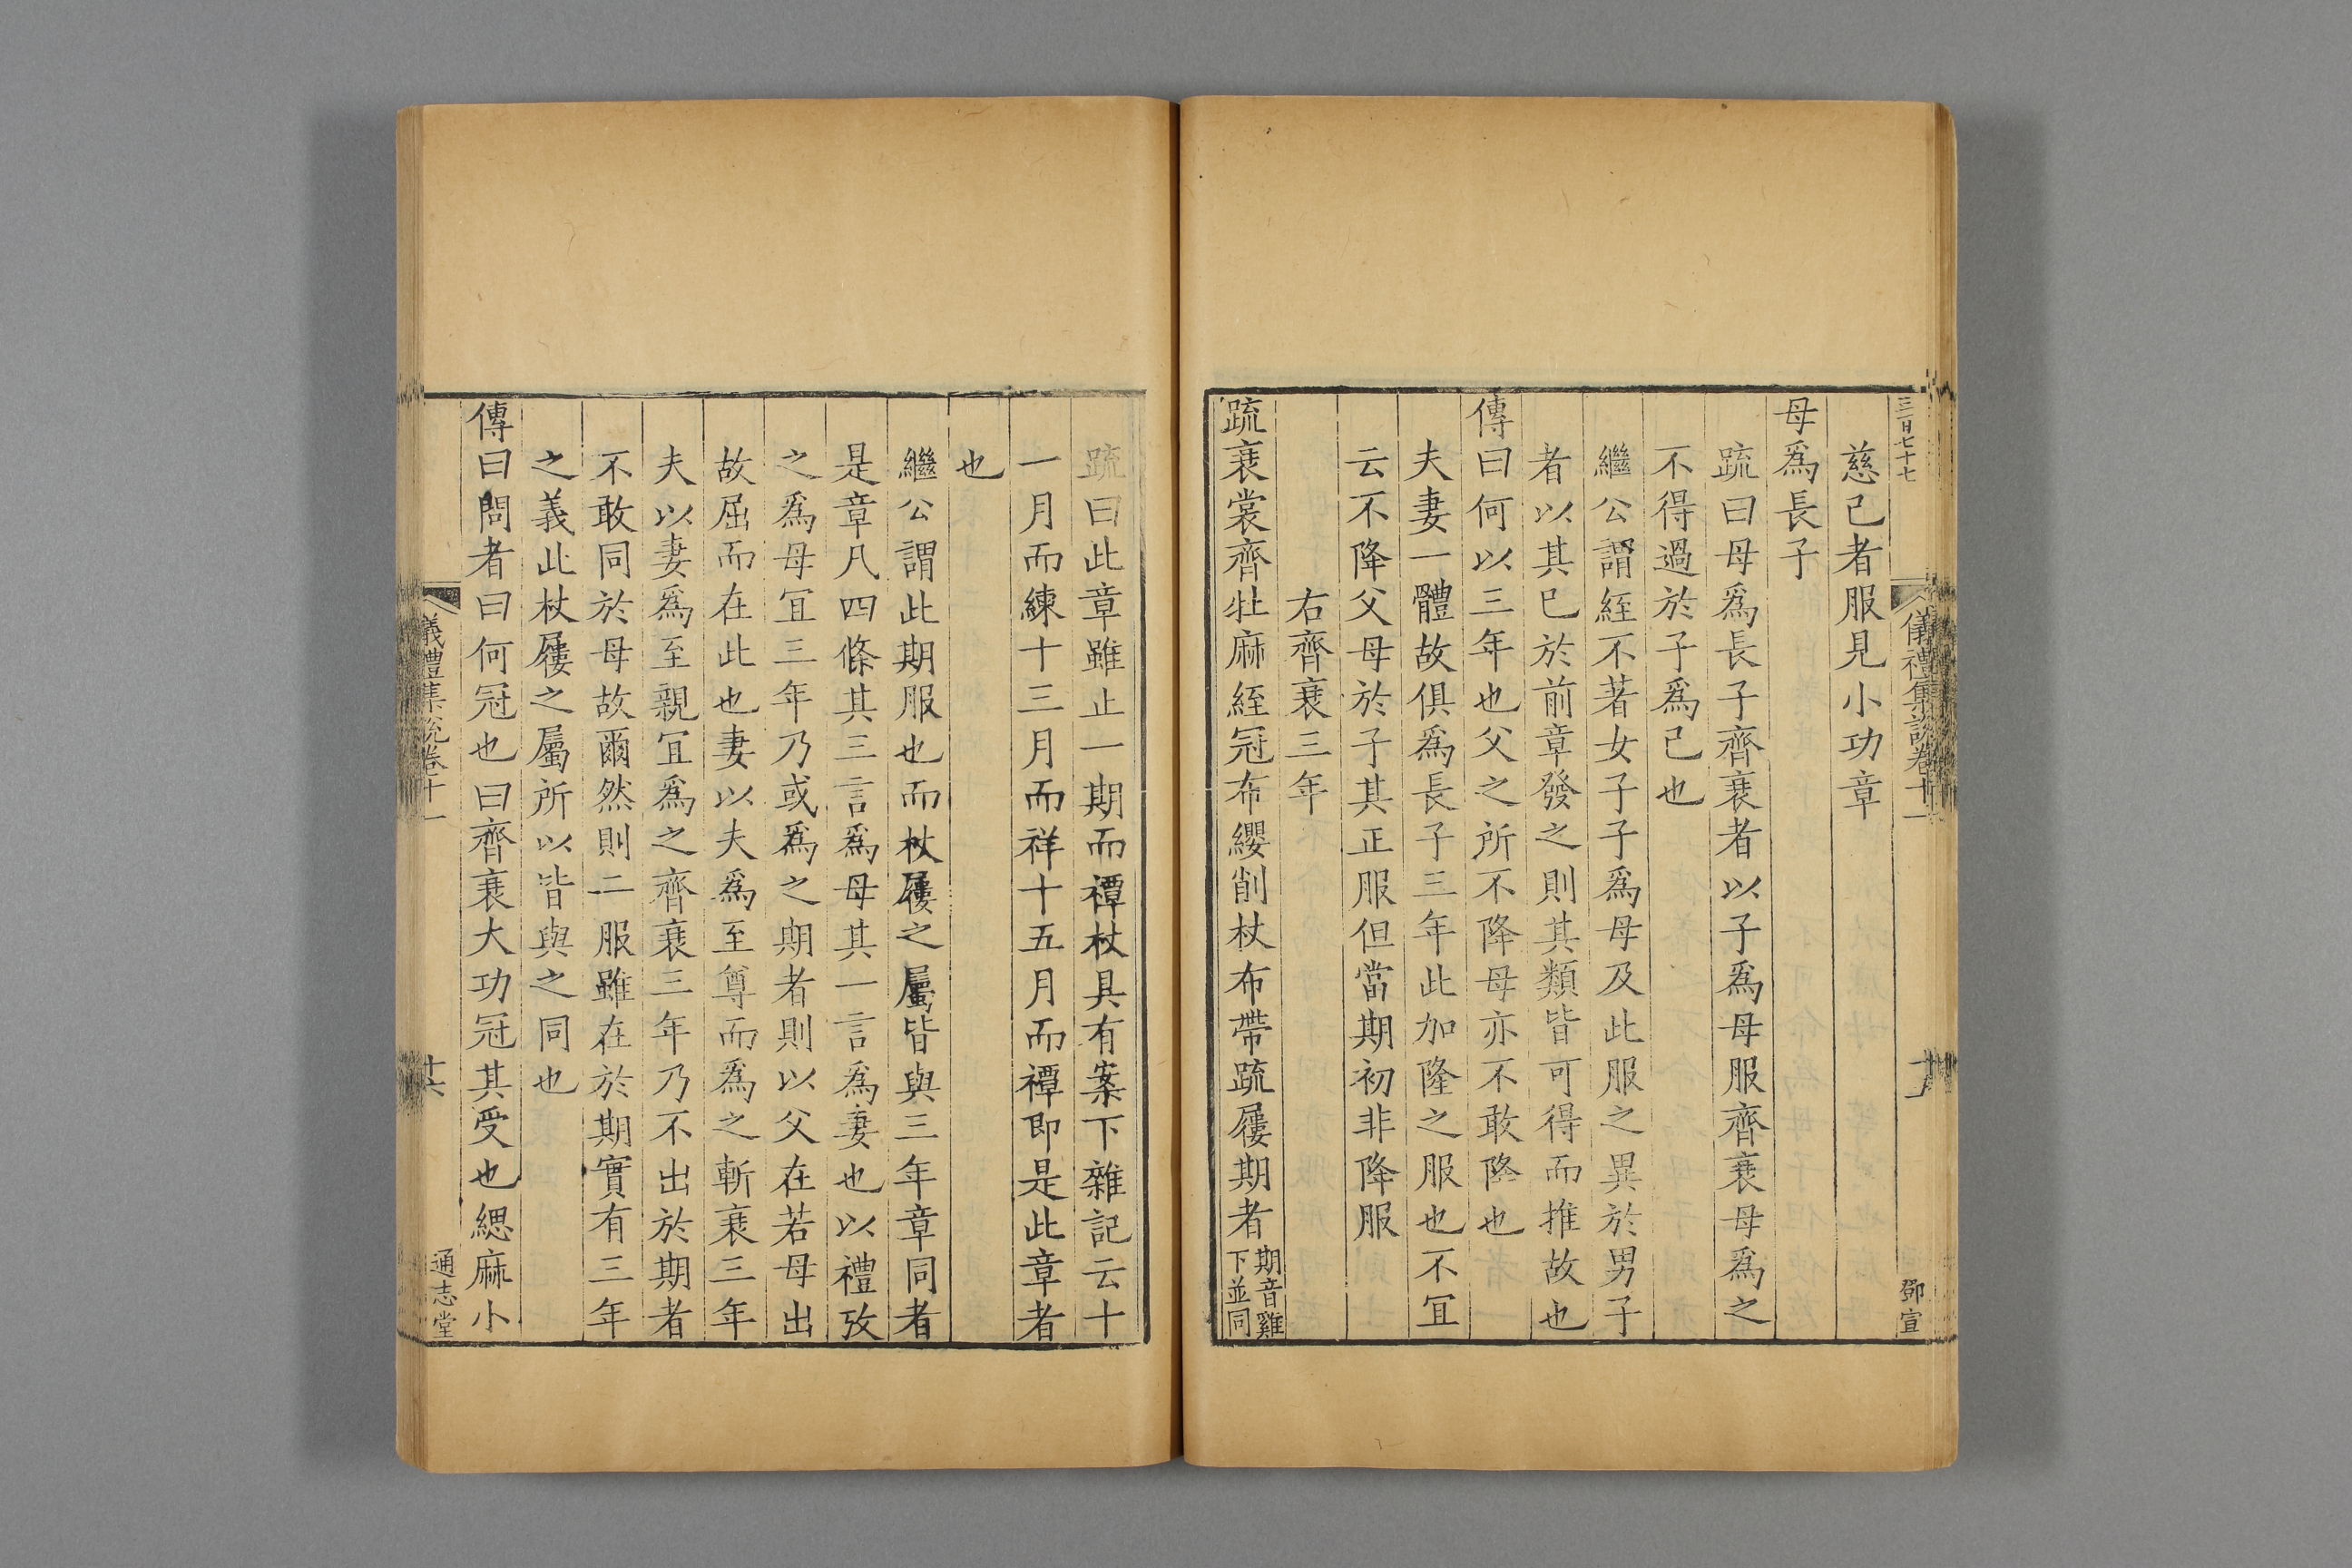 三百七十七
儀禮集說卷十一
鄧宣
慈己者服見小功章
母爲長子
疏曰母爲長子齊衰者以子爲母服齊衰母爲之
不得過於子爲己也
繼公謂絰不著女子子爲母及此服之異於男子
者以其已於前章發之則其類皆可得而推故也
傳曰何以三年也父之所不降母亦不敢降也
夫妻一體故俱爲長子三年此加隆之服也不宜
云不降父母於子其正服但當期初非降服
右齊衰三年
疏衰裳齊牡麻絰冠布纓削杖布帶疏屨期者期音雞下並同
疏曰此章雖止一期而禫杖具有案下雜記云十
一月而練十三月而祥十五月而禫即是此章者
也
繼公謂此期服也而杖屨之屬皆與三年章同者
是章凡四條其三言爲母其一言爲妻也以禮攷
之爲母宜三年乃或爲之期者則以父在若母出
故屈而在此也妻以夫爲至尊而爲之斬衰三年
夫以妻爲至親宜爲之齊衰三年乃不出於期者
不敢同於母故爾然則二服雖在於期實有三年
之義此杖屨之屬所以皆與之同也
傳曰問者曰何冠也曰齊衰大功冠其受也緦麻小
儀禮集說卷十一
十六
通志堂